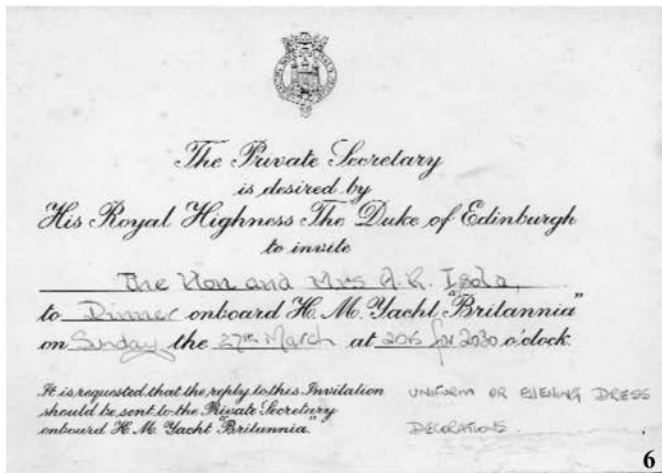 The Private Secretary
is desired by
His Royal Highness The Duke of Edinburgh
to invite
The Hon and Mrs A. R. Isola,
to Dinner onboard H. M. Yacht "Britannia"
on Sunday the 27th March at 2015 for 2030 o'clock.
It is requested that the reply to this Invitation
should be sent to the Private Secretary
onboard H. M. Yacht "Britannia."
UNIFORM OR EVENING DRESS
DECORATIONS
6